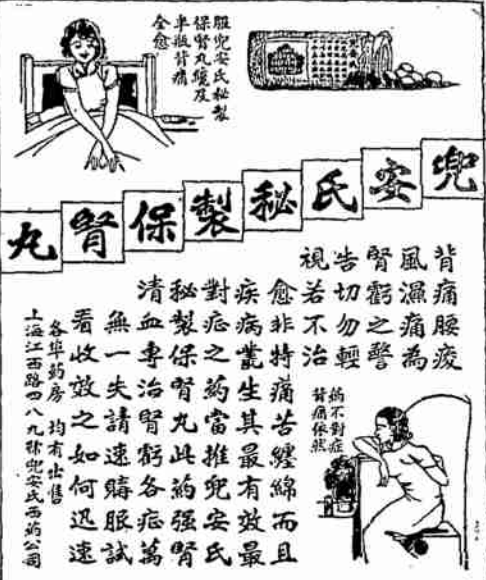 服兜安氏秘製
保腎丸纔及
半瓶背痛
全愈
兜安氏秘製保腎丸
背痛腰痠
風濕痛為
腎虧之警
告切勿輕
視若不治
愈非特痛苦纏綿而且
疾病叢生其最有效最
對症之药當推兜安氏
秘製保腎丸此药强腎
清血專治腎虧各症萬
無一失請速購服試
看收效之如何迅速
药不對症
背痛依然
各埠药房 均有出售
上海江西路四八九號兜安氏西药公司